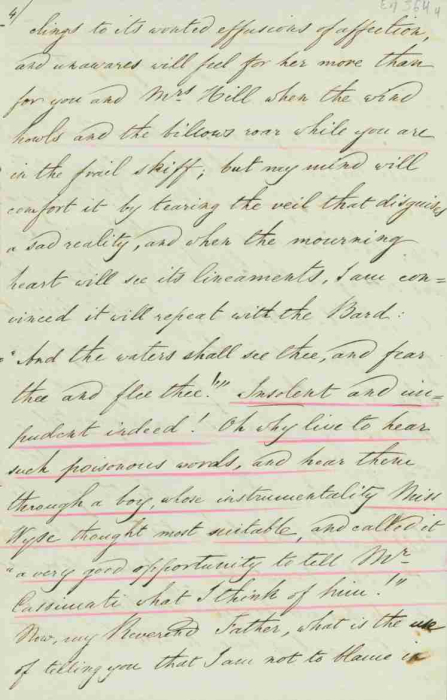 4/
clings to its wonted effusions of affection,
and unawares will feel for her more than
for you and Mrs Hill when the wind
howls and the billows roar while you are
in the frail skiff; but my mind will
comfort it by tearing the veil that disguises
a sad reality, and when the mourning
heart will see its lineaments, I am con=
vinced it will repeat with the Bard:
"And the waters shall see thee, and fear
thee and flee thee!"" Insolent and im=
pudent indeed! Oh why live to hear
such poisonous words, and hear them
through a boy, whose instrumentality Miss
Wyse thought most suitable, and called it
"a very good opportunity to tell Mr
Cassimati what I think of him!"
Now, my Reverend Father, what is the use
of telling you that I am not to blame in